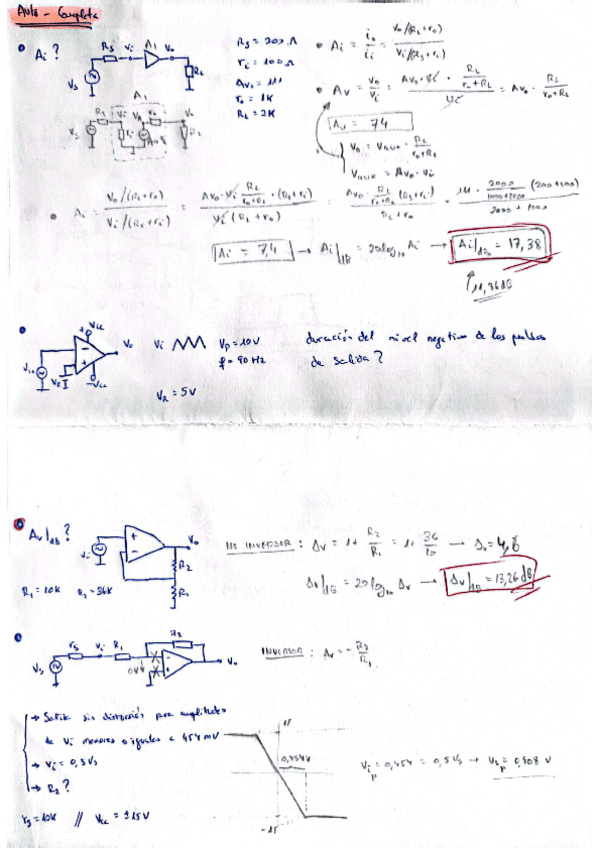 Auto - Completa
Ai ?
Rs Vi A1 Vo
Vs RL
Rs = 200 Ω
ri = 100 Ω
Avo = 111
ro = 1K
RL = 2K
Ai = io/ii = Vo/(RL+ro) / Vi/(Rs+ri)
Av = Vo/Vi = Avo·Vi · RL/(ro+RL) / Vi = Avo · RL/(ro+RL)
Av = 74
Vo = Vaux · RL/(ro+RL)
Vaux = Avo · Vi
Ai = Vo/(RL+ro) / Vi/(Rs+ri) = Avo·Vi RL/(ro+RL) · (Rs+ri) / Vi (RL+ro) = Avo · RL/(ro+RL) (Rs+ri) / RL+ro
2000/(1000+2000) (200+100) / 2000+1000
Ai = 7,4 → Ai|dB = 20log10 Ai → Ai|dB = 17,38
+Vcc
Vo Vi Vp = 10V
f = 90 Hz
-Vcc
VR = 5V
duración del nivel negativo de los pulsos
de salida?
Av|dB ?
Vi Vo
R2
R1
R1 = 10K R2 = 36K
NO INVERSOR : Av = 1 + R2/R1 = 1 + 36/10 → Av = 4,6
Av|dB = 20 log10 Av → Av|dB = 13,26 dB
rs Vi R1 R2
Vs 0V Vo
INVERSOR : Av = - R2/R1
→ Salida sin distorsión para amplitudes
de Vi menores o iguales a 454 mV
→ Vi = 0,5 Vs
→ R2 ?
rs = 10K // Vcc = ±15V
15
0,454V
-15
Vip = 0,454 = 0,5 Vs → Vsp = 0,908 V